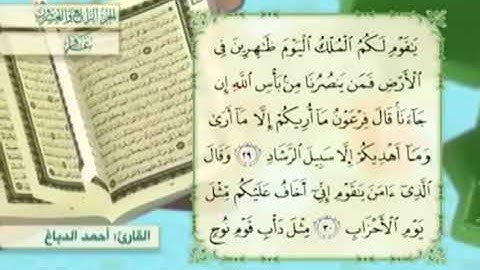 الجزء الرابع والعشرون
غافر
يَٰقَوْمِ لَكُمُ ٱلْمُلْكُ ٱلْيَوْمَ ظَٰهِرِينَ فِى
ٱلْأَرْضِ فَمَن يَنصُرُنَا مِنۢ بَأْسِ ٱللَّهِ إِن
جَآءَنَا ۚ قَالَ فِرْعَوْنُ مَآ أُرِيكُمْ إِلَّا مَآ أَرَىٰ
وَمَآ أَهْدِيكُمْ إِلَّا سَبِيلَ ٱلرَّشَادِ ٢٩ وَقَالَ
ٱلَّذِىٓ ءَامَنَ يَٰقَوْمِ إِنِّىٓ أَخَافُ عَلَيْكُم مِّثْلَ
يَوْمِ ٱلْأَحْزَابِ ٣٠ مِثْلَ دَأْبِ قَوْمِ نُوحٍ
القارئ: أحمد الدباغ